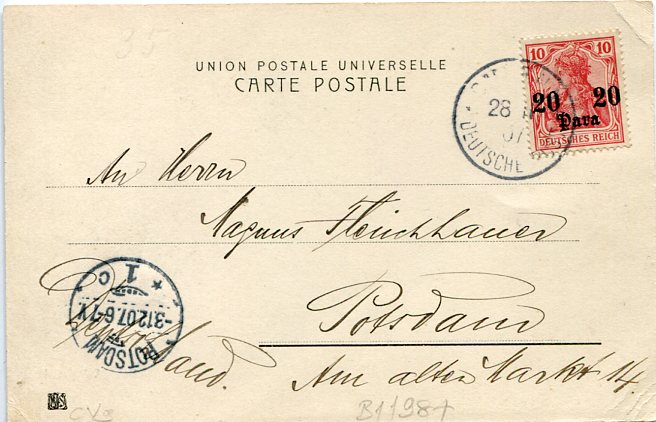 35
UNION POSTALE UNIVERSELLE
CARTE POSTALE
10 10
20 20
Para
DEUTSCHES REICH
28
07
DEUTSCHE
An Herrn
Magnus Fleischhauer
Potsdam
Am alten Markt 14.
Deutschland.
POTSDAM
-3.12.07.6-7 V.
* 1 c
B11987